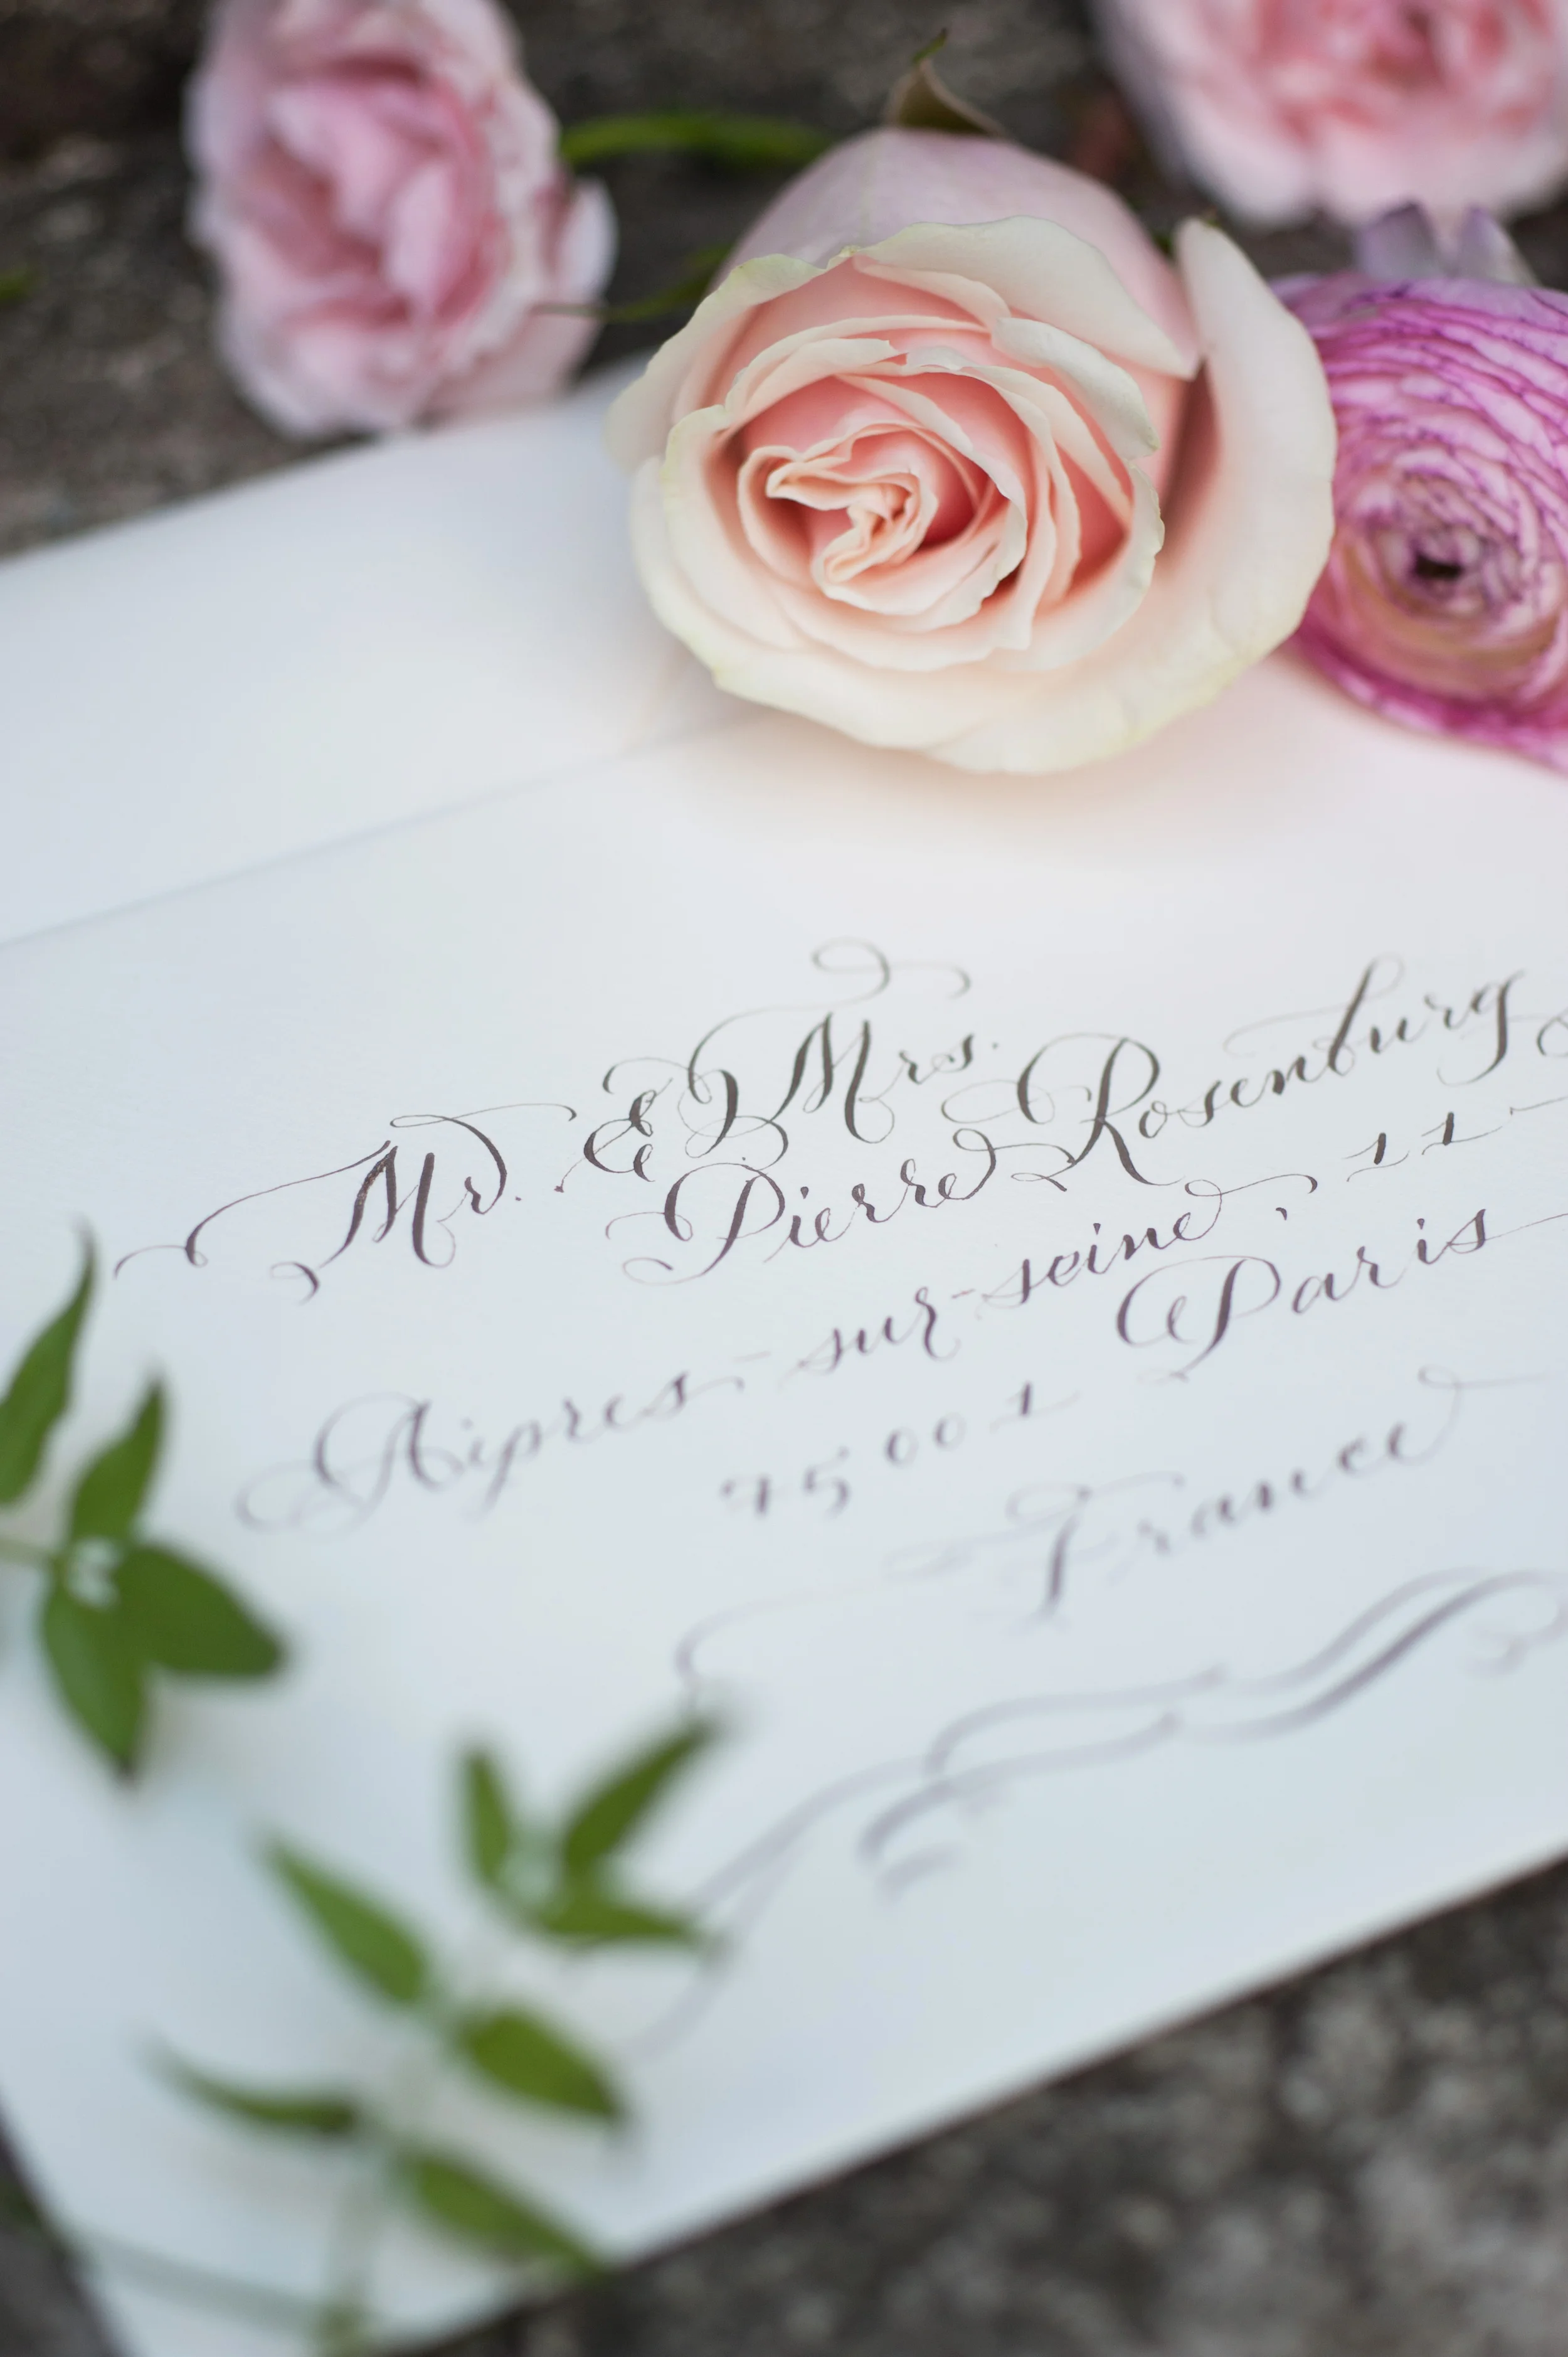 Mr. & Mrs. Pierre Rosenburg
Aipres-sur-seine, 11
75001 Paris
France